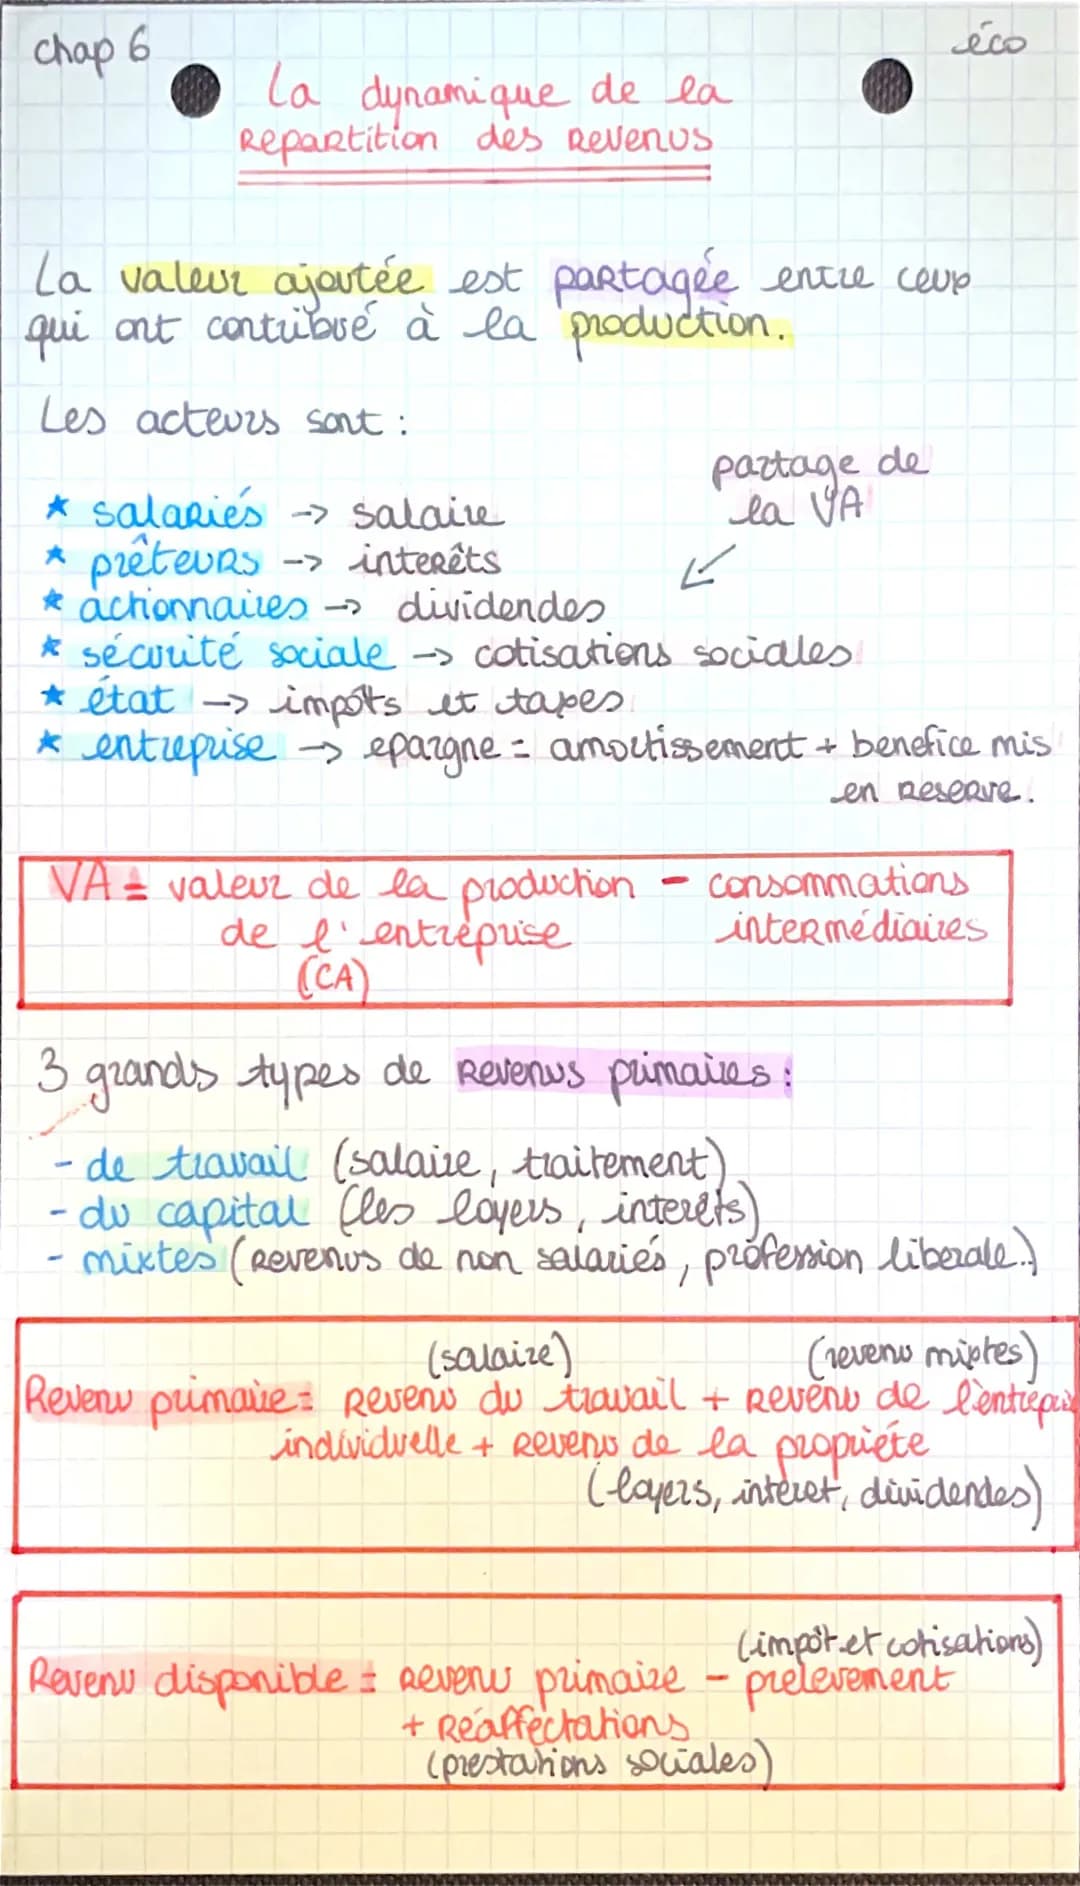 chap 6
éco
La dynamique de la
Repartition des Revenus
La valeur ajoutée est partagée entre ceux
qui ont contribué à la production.
Les acteurs sont :
partage de
la VA
★ salariés -> salaire
★ prêteurs -> interêts
★ actionnaires -> dividendes
★ sécurité sociale -> cotisations sociales
★ état -> impôts et taxes
★ entreprise -> epargne = amortissement + benefice mis
en reserve.
VA = valeur de la production - consommations
de l'entreprise intermédiaires
(CA)
3 grands types de Revenus primaires :
- de travail (salaire, traitement)
- du capital (les loyers, interêts)
- mixtes (Revenus de non salariés, profession liberale..)
(salaire) (revenu mixtes)
Revenu primaire = Revenu du travail + Revenu de l'entreprise
individuelle + Revenu de la propriéte
(loyers, intêret, dividendes)
(impôt et cotisations)
Revenu disponible = Revenu primaire - prelevement
+ Réaffectations
(prestations sociales)